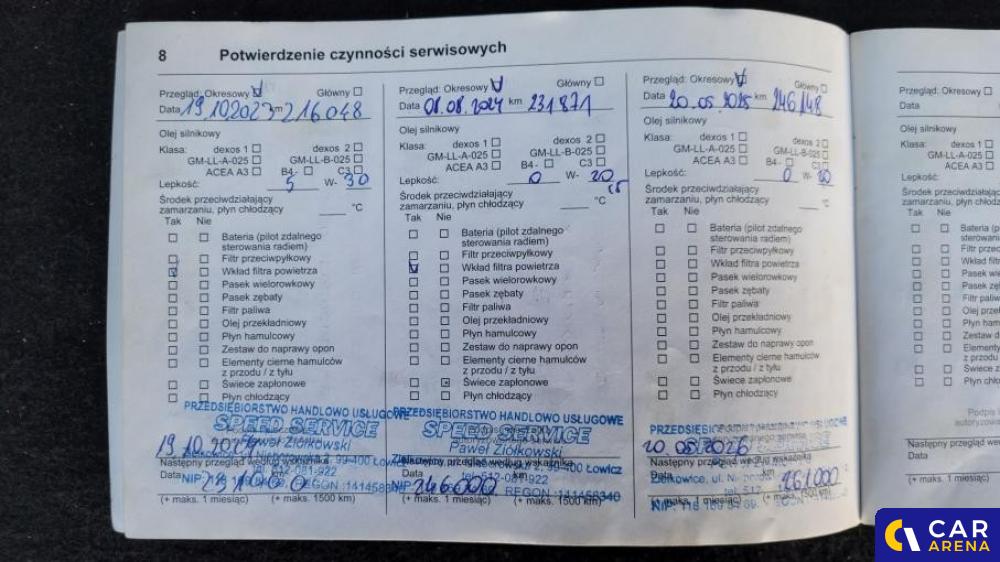 8 Potwierdzenie czynności serwisowych
Przegląd: Okresowy Główny
Data 19.10.2023 km 216048
Olej silnikowy
Klasa: dexos 1 dexos 2
GM-LL-A-025 GM-LL-B-025
ACEA A3 B4- C3
Lepkość: 5 W- 30
Środek przeciwdziałający
zamarzaniu, płyn chłodzący °C
Tak Nie
Bateria (pilot zdalnego
sterowania radiem)
Filtr przeciwpyłkowy
Wkład filtra powietrza
Pasek wielorowkowy
Pasek zębaty
Filtr paliwa
Olej przekładniowy
Płyn hamulcowy
Zestaw do naprawy opon
Elementy cierne hamulców
z przodu / z tyłu
Świece zapłonowe
Płyn chłodzący
PRZEDSIĘBIORSTWO HANDLOWO USŁUGOWE
SPEED SERVICE
Paweł Ziółkowski
19.10.2024
99-400 Łowicz
Następny przegląd według wskaźnika
512-081-922
Data km
231000
NIP
REGON :141458340
(+ maks. 1 miesiąc) (+ maks. 1500 km)
Przegląd: Okresowy Główny
Data 01.08.2024 km 231871
Olej silnikowy
Klasa: dexos 1 dexos 2
GM-LL-A-025 GM-LL-B-025
ACEA A3 B4- C3
Lepkość: 0 W- 20
Środek przeciwdziałający
zamarzaniu, płyn chłodzący °C
Tak Nie
Bateria (pilot zdalnego
sterowania radiem)
Filtr przeciwpyłkowy
Wkład filtra powietrza
Pasek wielorowkowy
Pasek zębaty
Filtr paliwa
Olej przekładniowy
Płyn hamulcowy
Zestaw do naprawy opon
Elementy cierne hamulców
z przodu / z tyłu
Świece zapłonowe
Płyn chłodzący
PRZEDSIĘBIORSTWO HANDLOWO USŁUGOWE
SPEED SERVICE
Paweł Ziółkowski
99-400 Łowicz
Następny przegląd według wskaźnika
tel. 512-081-922
Data km
246000
NIP
REGON :141458340
(+ maks. 1 miesiąc) (+ maks. 1500 km)
Przegląd: Okresowy Główny
Data 20.05.2025 km 246148
Olej silnikowy
Klasa: dexos 1 dexos 2
GM-LL-A-025 GM-LL-B-025
ACEA A3 B4- C3
Lepkość: 0 W- 20
Środek przeciwdziałający
zamarzaniu, płyn chłodzący °C
Tak Nie
Bateria (pilot zdalnego
sterowania radiem)
Filtr przeciwpyłkowy
Wkład filtra powietrza
Pasek wielorowkowy
Pasek zębaty
Filtr paliwa
Olej przekładniowy
Płyn hamulcowy
Zestaw do naprawy opon
Elementy cierne hamulców
z przodu / z tyłu
Świece zapłonowe
Płyn chłodzący
20.05.2026
Następny przegląd według wskaźnika
Ziółkowice, ul.
Data km
261000
(+ maks. 1 miesiąc) (+ maks. 1500 km)
Przegląd: Okresowy
Data
Olej silnikowy
Klasa: dexos 1
GM-LL-A-025
ACEA A3
Lepkość:
Tak Nie
Następny przegląd
Data
(+ maks. 1 miesiąc)
CAR
ARENA